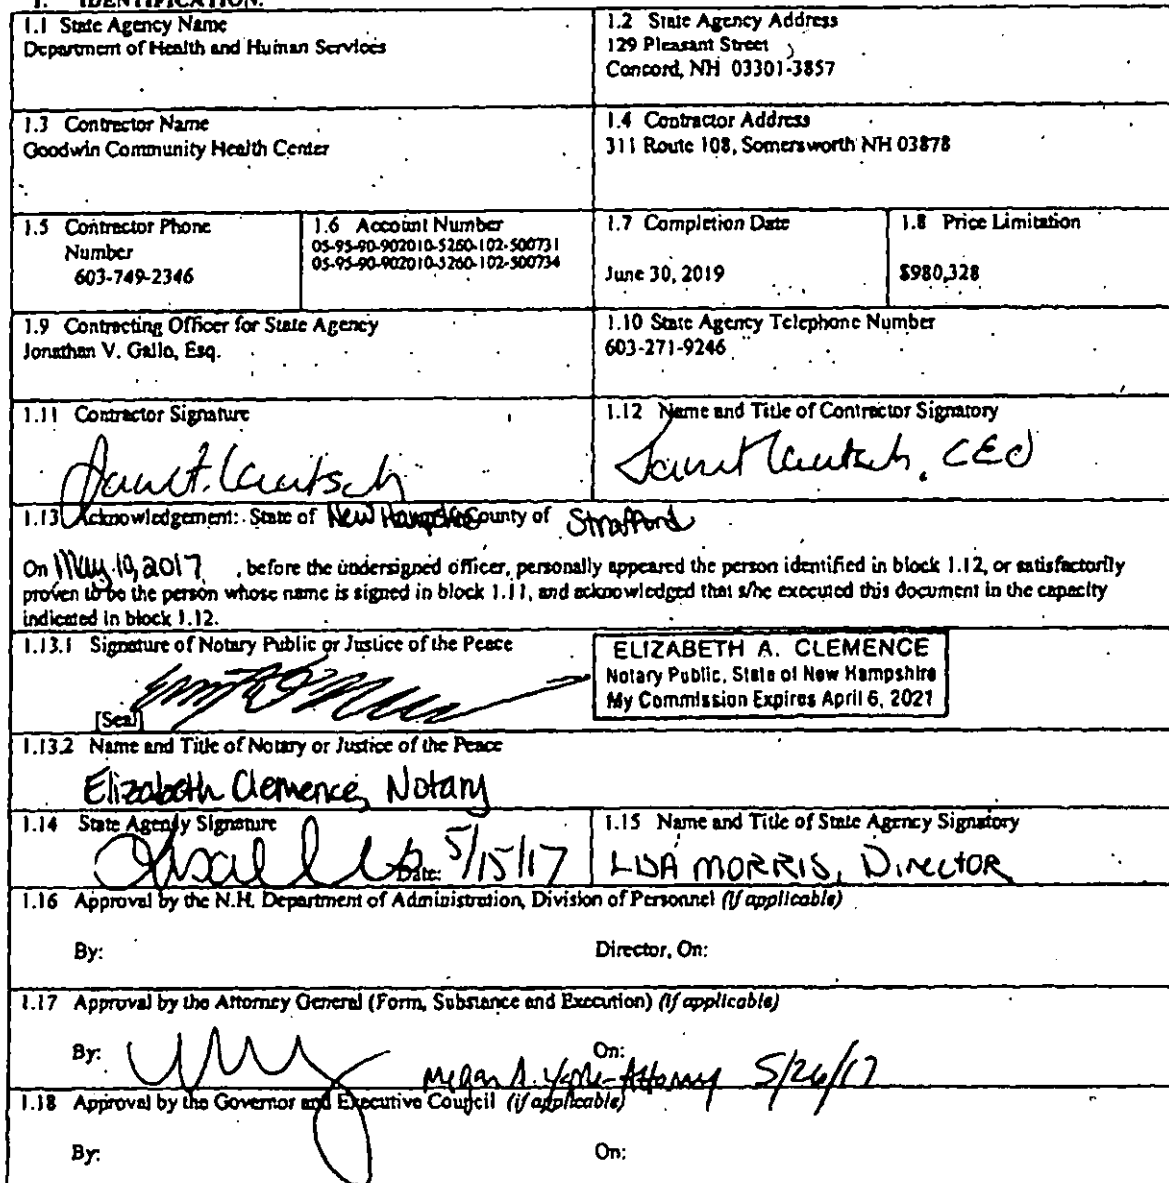 1. IDENTIFICATION.
1.1 State Agency Name
Department of Health and Human Services
1.2 State Agency Address
129 Pleasant Street
Concord, NH 03301-3857
1.3 Contractor Name
Goodwin Community Health Center
1.4 Contractor Address
311 Route 108, Somersworth NH 03878
1.5 Contractor Phone
Number
603-749-2346
1.6 Account Number
05-95-90-902010-5260-102-500731
05-95-90-902010-5260-102-500734
1.7 Completion Date
June 30, 2019
1.8 Price Limitation
$980,328
1.9 Contracting Officer for State Agency
Jonathan V. Gallo, Esq.
1.10 State Agency Telephone Number
603-271-9246
1.11 Contractor Signature
1.12 Name and Title of Contractor Signatory
Janet Laatsch, CEO
1.13 Acknowledgement: State of New Hampshire County of Strafford
On May 10, 2017, before the undersigned officer, personally appeared the person identified in block 1.12, or satisfactorily
proven to be the person whose name is signed in block 1.11, and acknowledged that s/he executed this document in the capacity
indicated in block 1.12.
1.13.1 Signature of Notary Public or Justice of the Peace
[Seal]
ELIZABETH A. CLEMENCE
Notary Public, State of New Hampshire
My Commission Expires April 6, 2021
1.13.2 Name and Title of Notary or Justice of the Peace
Elizabeth Clemence, Notary
1.14 State Agency Signature
Date: 5/15/17
1.15 Name and Title of State Agency Signatory
LISA MORRIS, DIRECTOR
1.16 Approval by the N.H. Department of Administration, Division of Personnel (if applicable)
By: Director, On:
1.17 Approval by the Attorney General (Form, Substance and Execution) (if applicable)
By: On:
Megan A. Yaple-Attorney 5/26/17
1.18 Approval by the Governor and Executive Council (if applicable)
By: On: